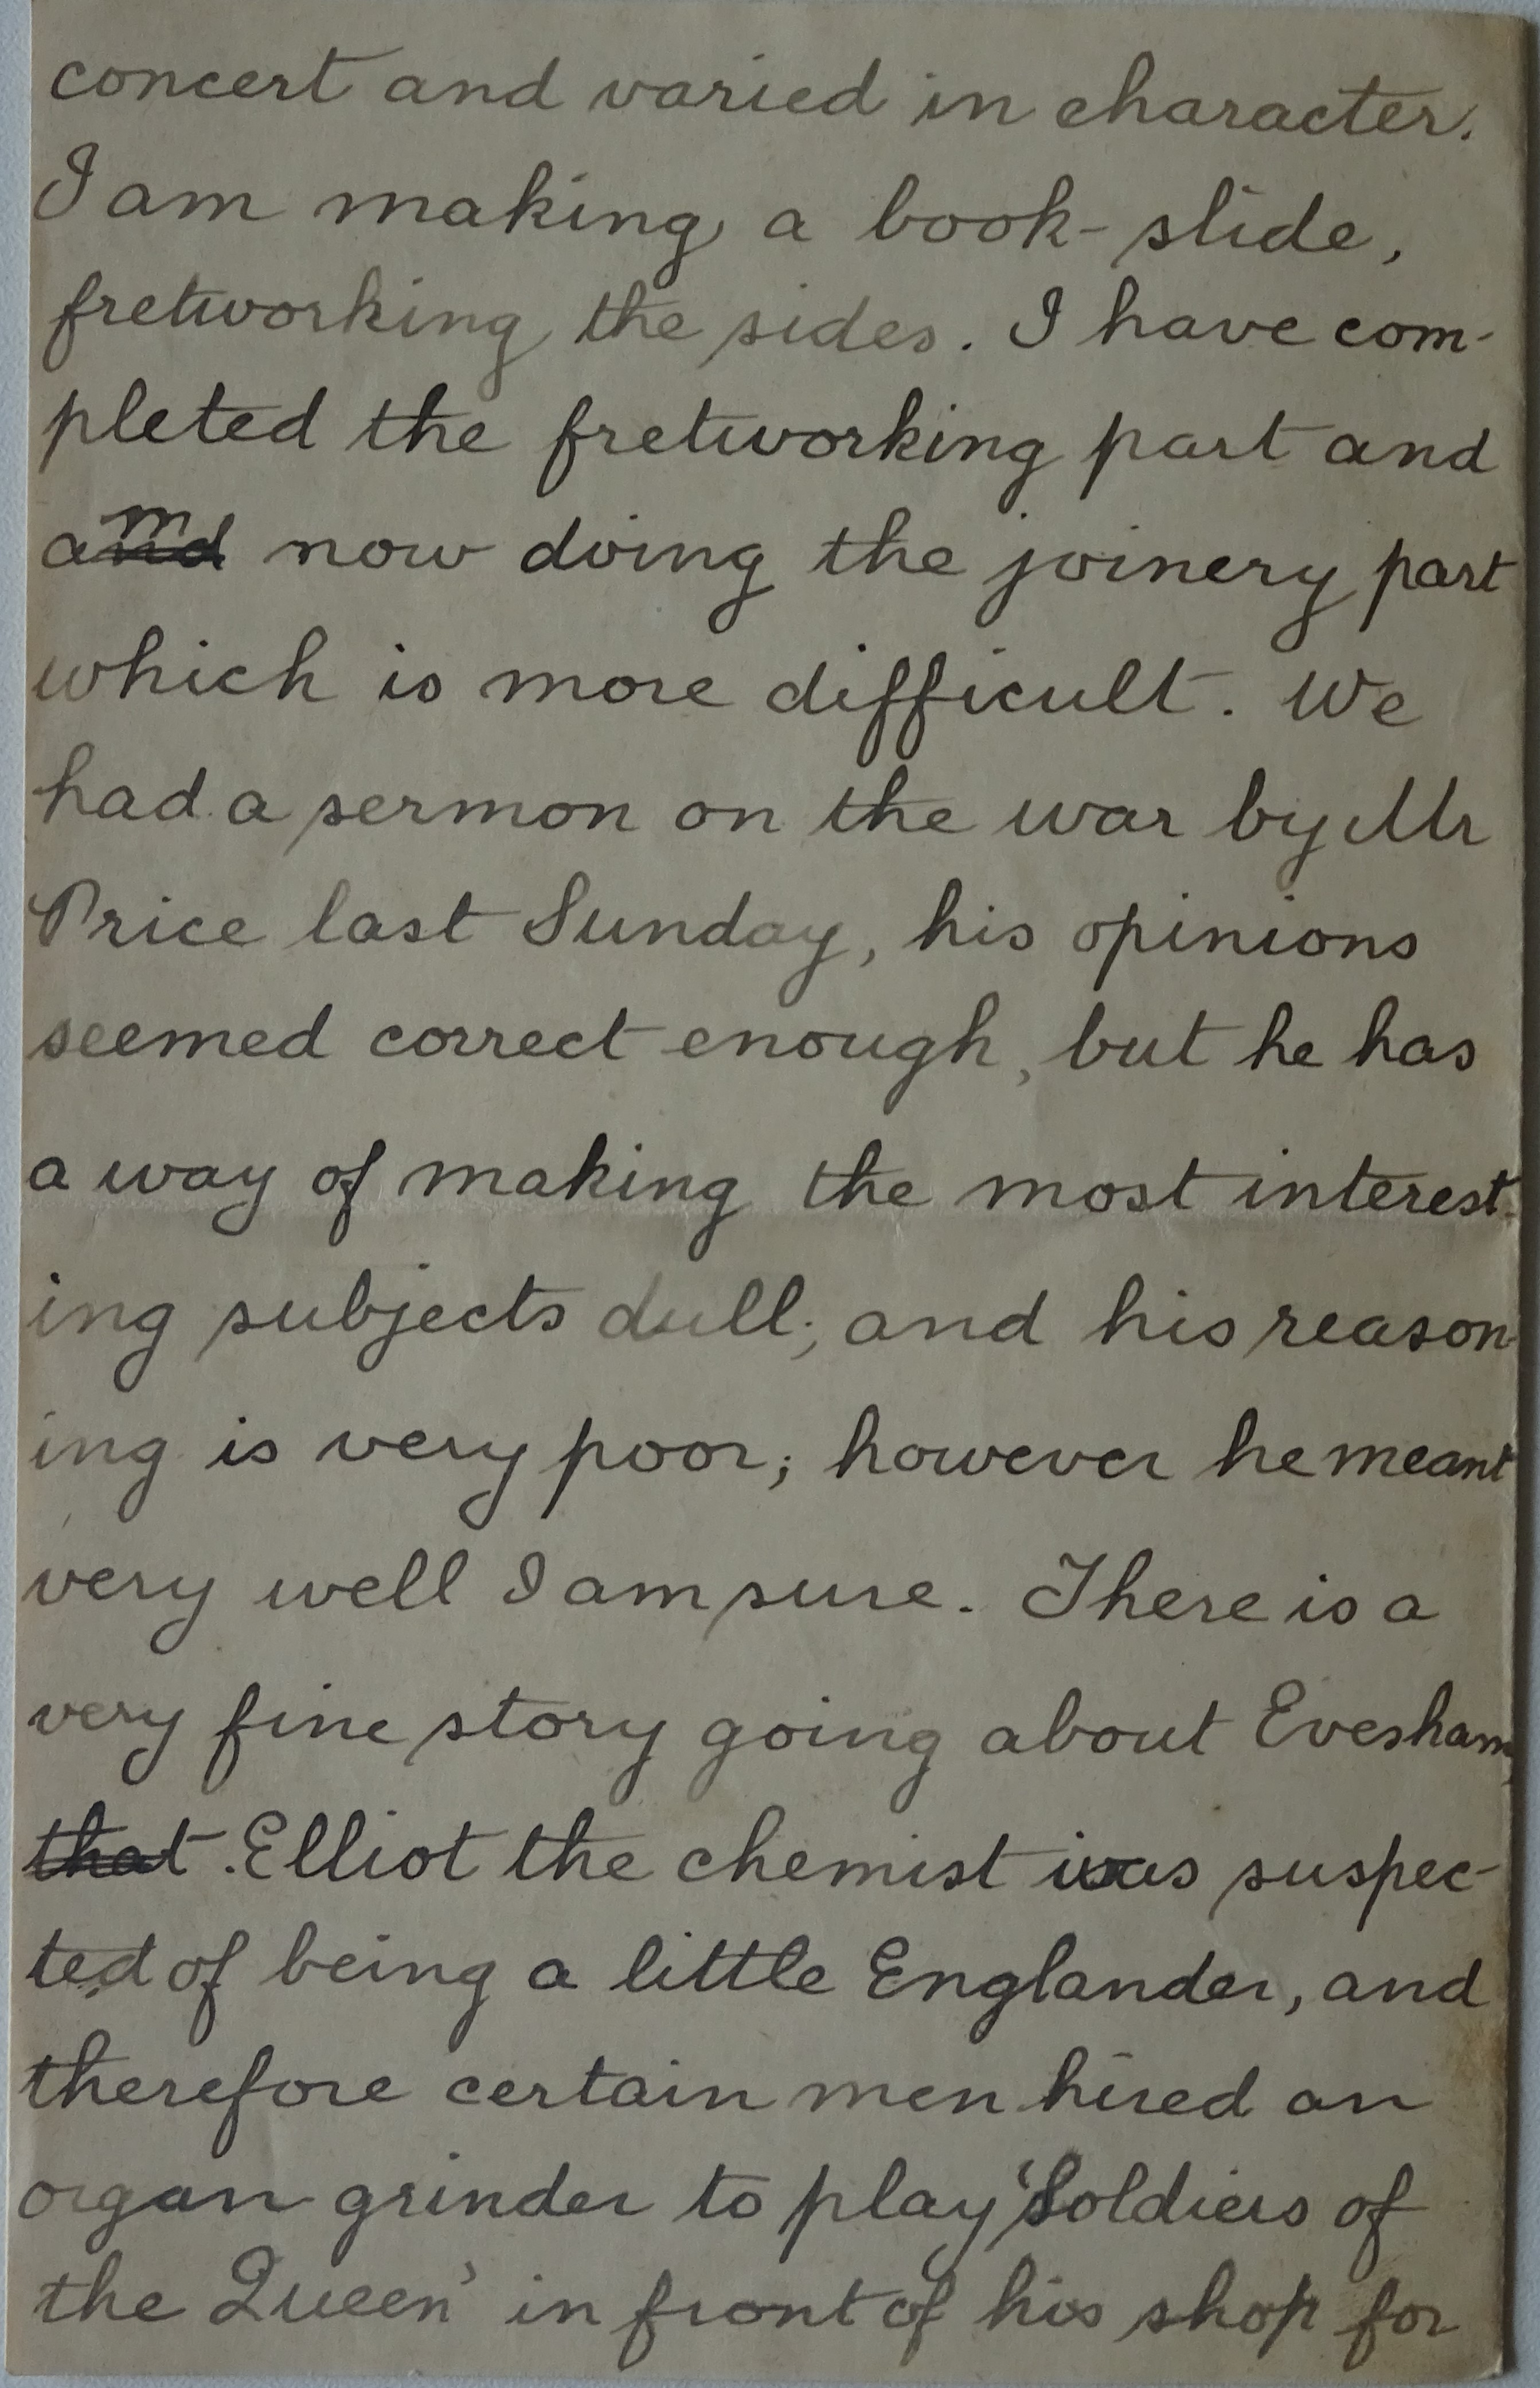 concert and varied in character.
I am making a book-slide,
fretworking the sides. I have com-
pleted the fretworking part and
am now doing the joinery part
which is more difficult. We
had a sermon on the war by Mr
Price last Sunday, his opinions
seemed correct enough, but he has
a way of making the most interest-
ing subjects dull; and his reason-
ing is very poor; however he meant
very well I am sure. There is a
very fine story going about Evesham,
that. Elliot the chemist was suspec-
ted of being a little Englander, and
therefore certain men hired an
organ grinder to play 'Soldiers of
the Queen' in front of his shop for